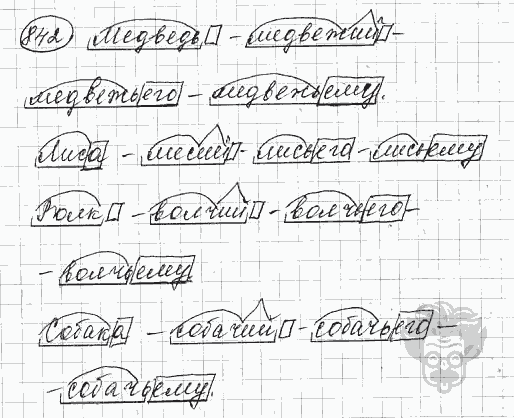 842 Медведь - медвежий -
медвежьего - медвежьему.
Лиса - лисий - лисьего - лисьему
Волк - волчий - волчьего -
- волчьему
Собака - собачий - собачьего -
- собачьему.